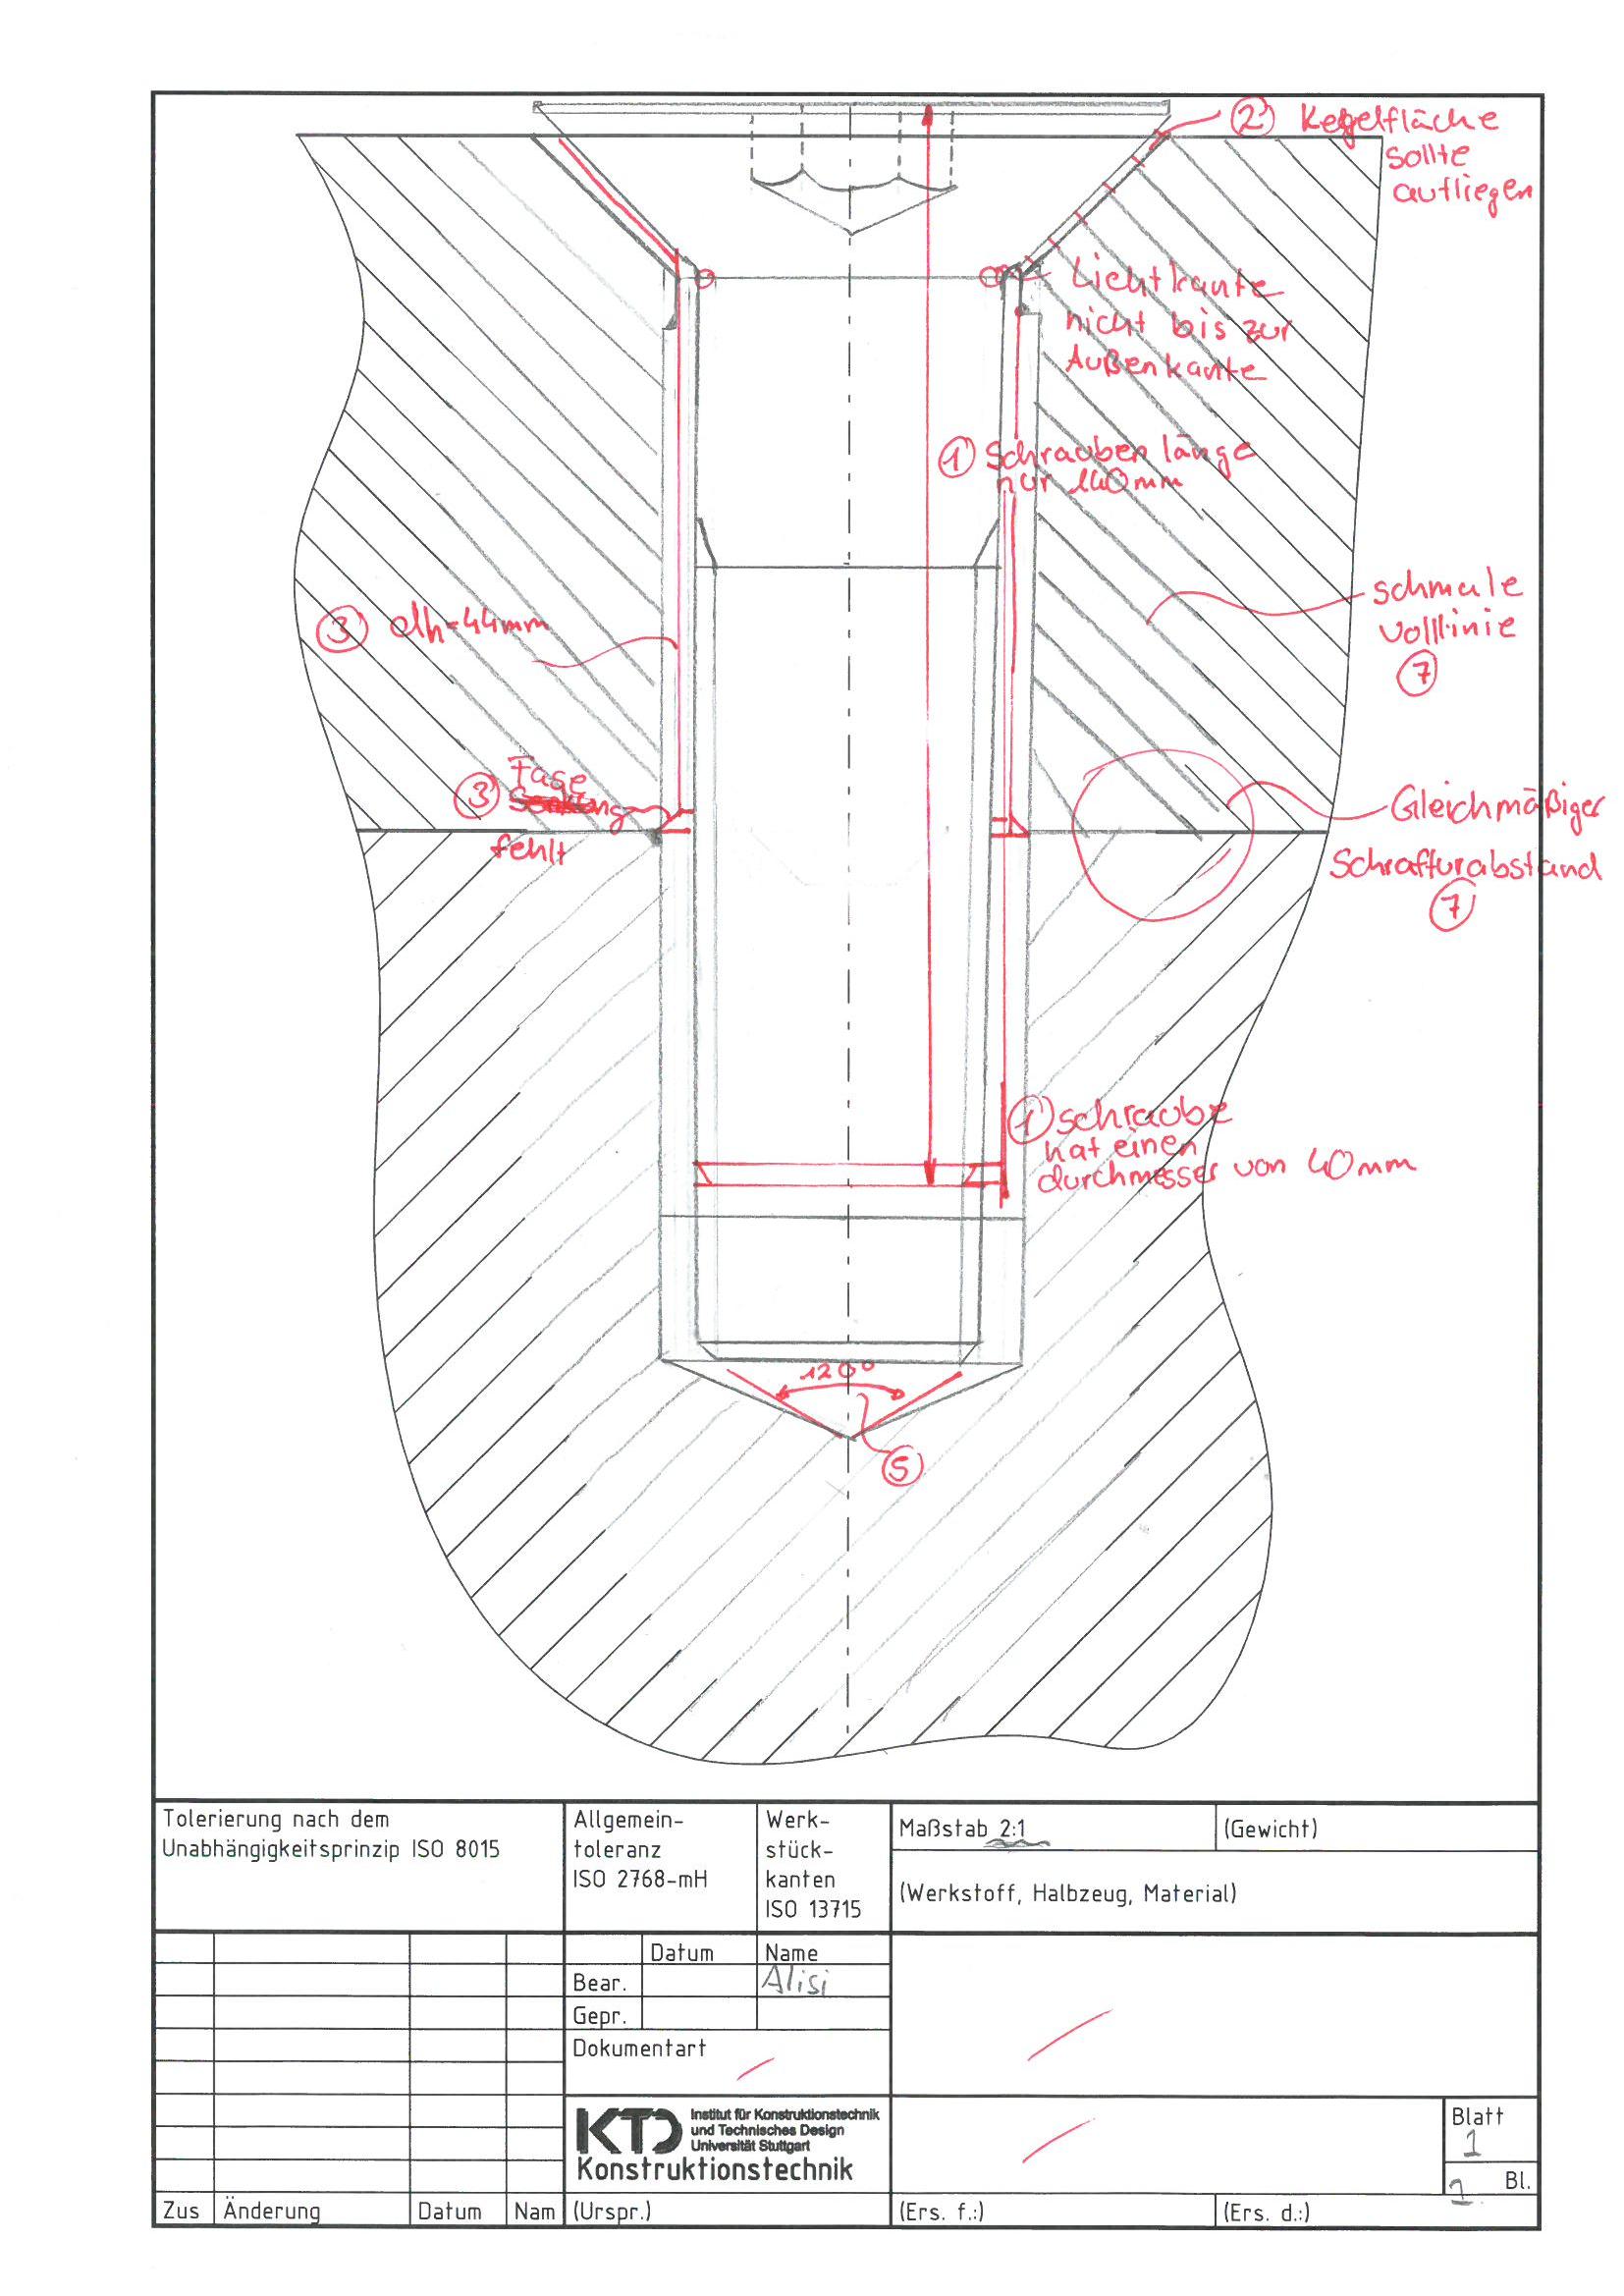 ② Kegelfläche
sollte
aufliegen
Lichtkante
nicht bis zur
Außenkante
① Schrauben länge
nur 140mm
schmale
Volllinie
⑦
③ dh=44mm
③ Fase
fehlt
Gleichmäßiger
Schraffurabstand
⑦
① Schraube
hat einen
durchmesser von 40mm
120°
⑤
Tolerierung nach dem
Unabhängigkeitsprinzip ISO 8015
Allgemein-
toleranz
ISO 2768-mH
Werk-
stück-
kanten
ISO 13715
Maßstab 2:1
(Gewicht)
(Werkstoff, Halbzeug, Material)
Datum
Name
Bear.
Alisi
Gepr.
Dokumentart
KTD
Institut für Konstruktionstechnik
und Technisches Design
Universität Stuttgart
Konstruktionstechnik
Blatt
1
1 Bl.
Zus
Änderung
Datum
Nam
(Urspr.)
(Ers. f.:)
(Ers. d.:)